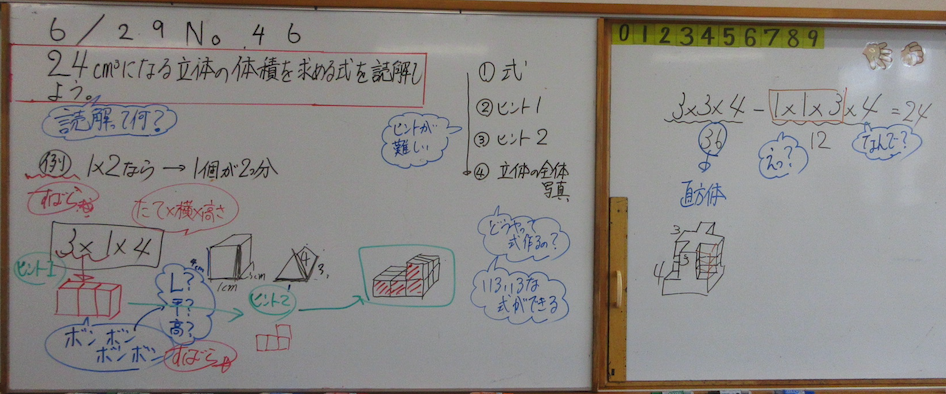 6/29 No.46
24cm³になる立体の体積を求める式を読解し
よう。
読解って何?
例) 1×2なら → 1個が2つ分
すばら
たて×横×高さ
3×1×4
ヒント1
ボン ボン
ボン ボン
L?
平?
高?
すばら
1cm
cm
4
3
ヒント2
ヒントが
難しい
① 式
② ヒント1
③ ヒント2
④ 立体の全体
写真
どうやって
式作るの?
いろいろな
式ができる
0 1 2 3 4 5 6 7 8 9
3×3×4 - 1×1×3×4 = 24
36
えっ?
12
なんで?
直方体
3
3
4